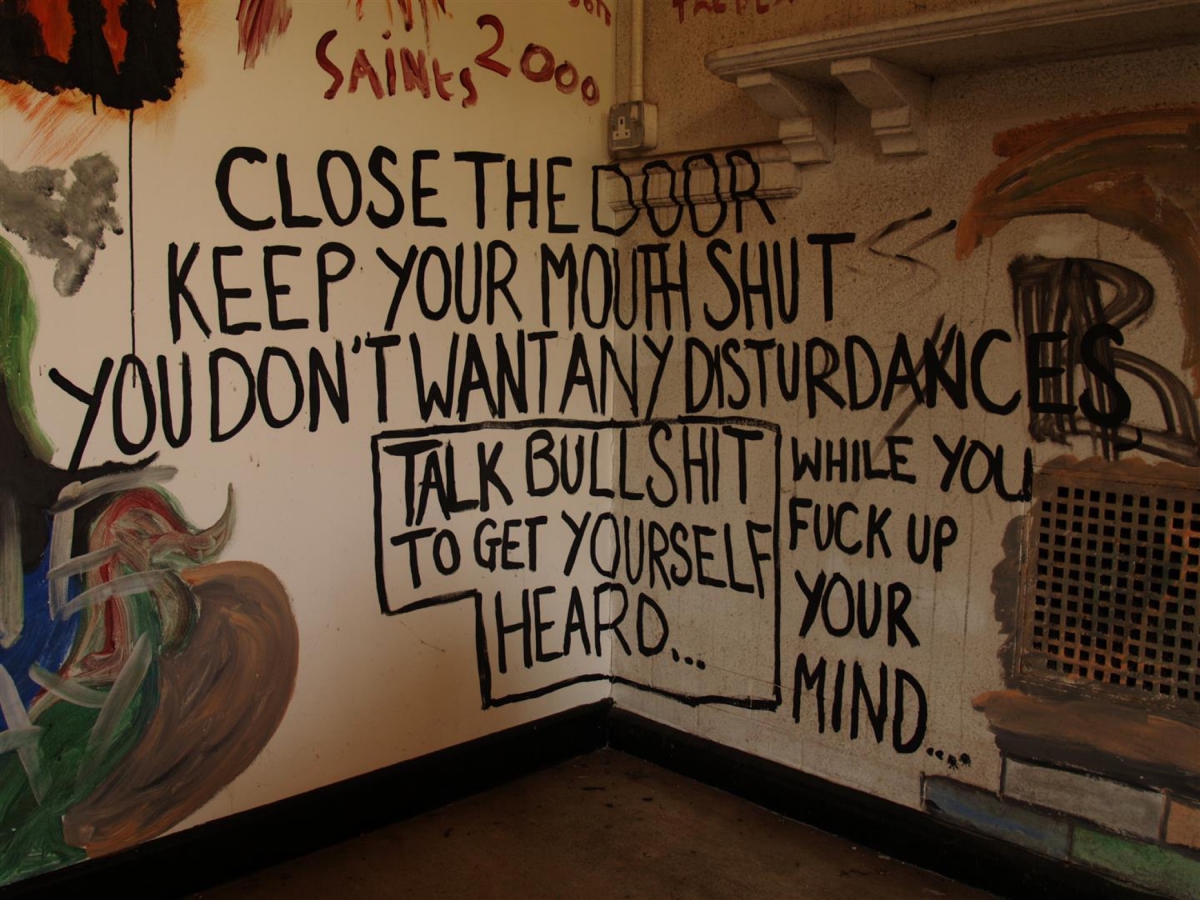 SAiNts 2000
CLOSE THE DOOR
KEEP YOUR MOUTH SHUT
YOU DON'T WANT ANY DISTURDANCES
TALK BULLSHIT
TO GET YOURSELF
HEARD...
WHILE YOU
FUCK UP
YOUR
MIND....